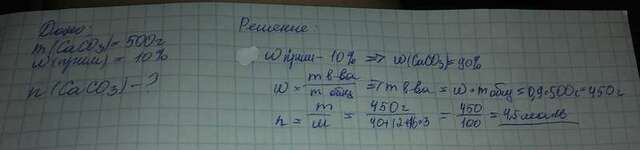 Дано:
m(CaCO₃)=500г
w(прим)=10%
n(CaCO₃)-?
Решение:
w прим-10% => w(CaCO₃)=90%
w = m в-ва / m общ => m в-ва = w·m общ = 0,9·500г=450г
n = m / M = 450г / 40+12+16·3 = 450 / 100 = 4,5моль